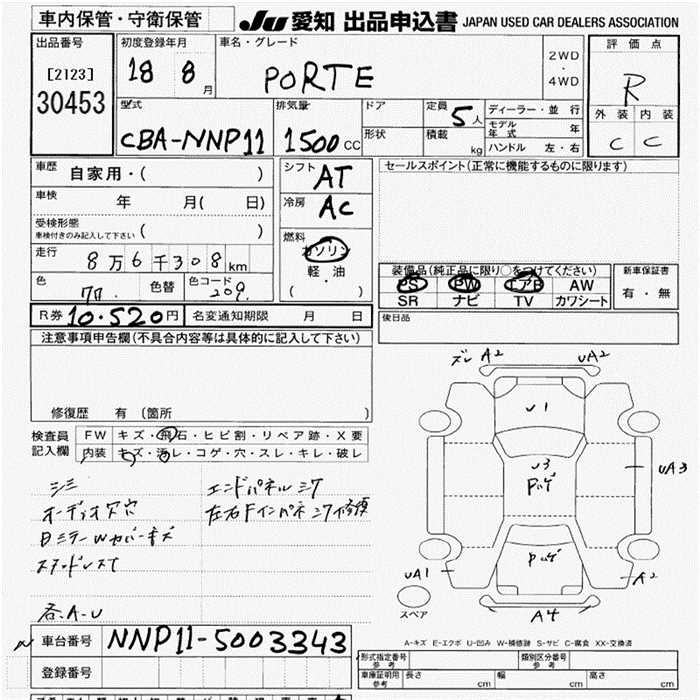 車内保管・守衛保管
JU 愛知 出品申込書 JAPAN USED CAR DEALERS ASSOCIATION
出品番号
[2123]
30453
初度登録年月
18 8 月
車名・グレード
PORTE
2WD
・
4WD
評価点
R
外装 内装
C C
型式
CBA-NNP11
排気量
1500 CC
ドア
形状
定員 5 人
積載 kg
ディーラー・並行
モデル年式 年
ハンドル 左・右
車歴 自家用・( )
車検 年 月( 日)
受検形態
車検付きのみ記入して下さい ( )
走行 8万6千308 km
色 色替 色コード
209.
シフト AT
冷房 AC
燃料
ガソリン
軽・油
( ・ )
セールスポイント(正常に機能するものに限ります)
装備品(純正品に限り〇をつけてください)
PS PW エアB AW
SR ナビ TV カワシート
新車保証書
有・無
後日品
R券 10.520円 名変通知期限 月 日
注意事項申告欄(不具合内容等は具体的に記入して下さい)
修復歴 有 (箇所 )
検査員
記入欄
FW キズ・飛石・ヒビ割・リペア跡・X要
内装 キズ・汚レ・コゲ・穴・スレ・キレ・破レ
シミ
オーディオ穴
エンドパネル
各A-U
ズレ A2 UA2
U1
U3
UA3
UA1
A2
A4
スペア
A-キズ E-エクボ U-凹み W-補修跡 S-サビ C-腐食 XX-交換済
車台番号 NNP11-5003343
登録番号
形式指定番号
参考
類別区分番号
参考
車庫証明用
参考
長さ cm 幅 cm 高さ cm